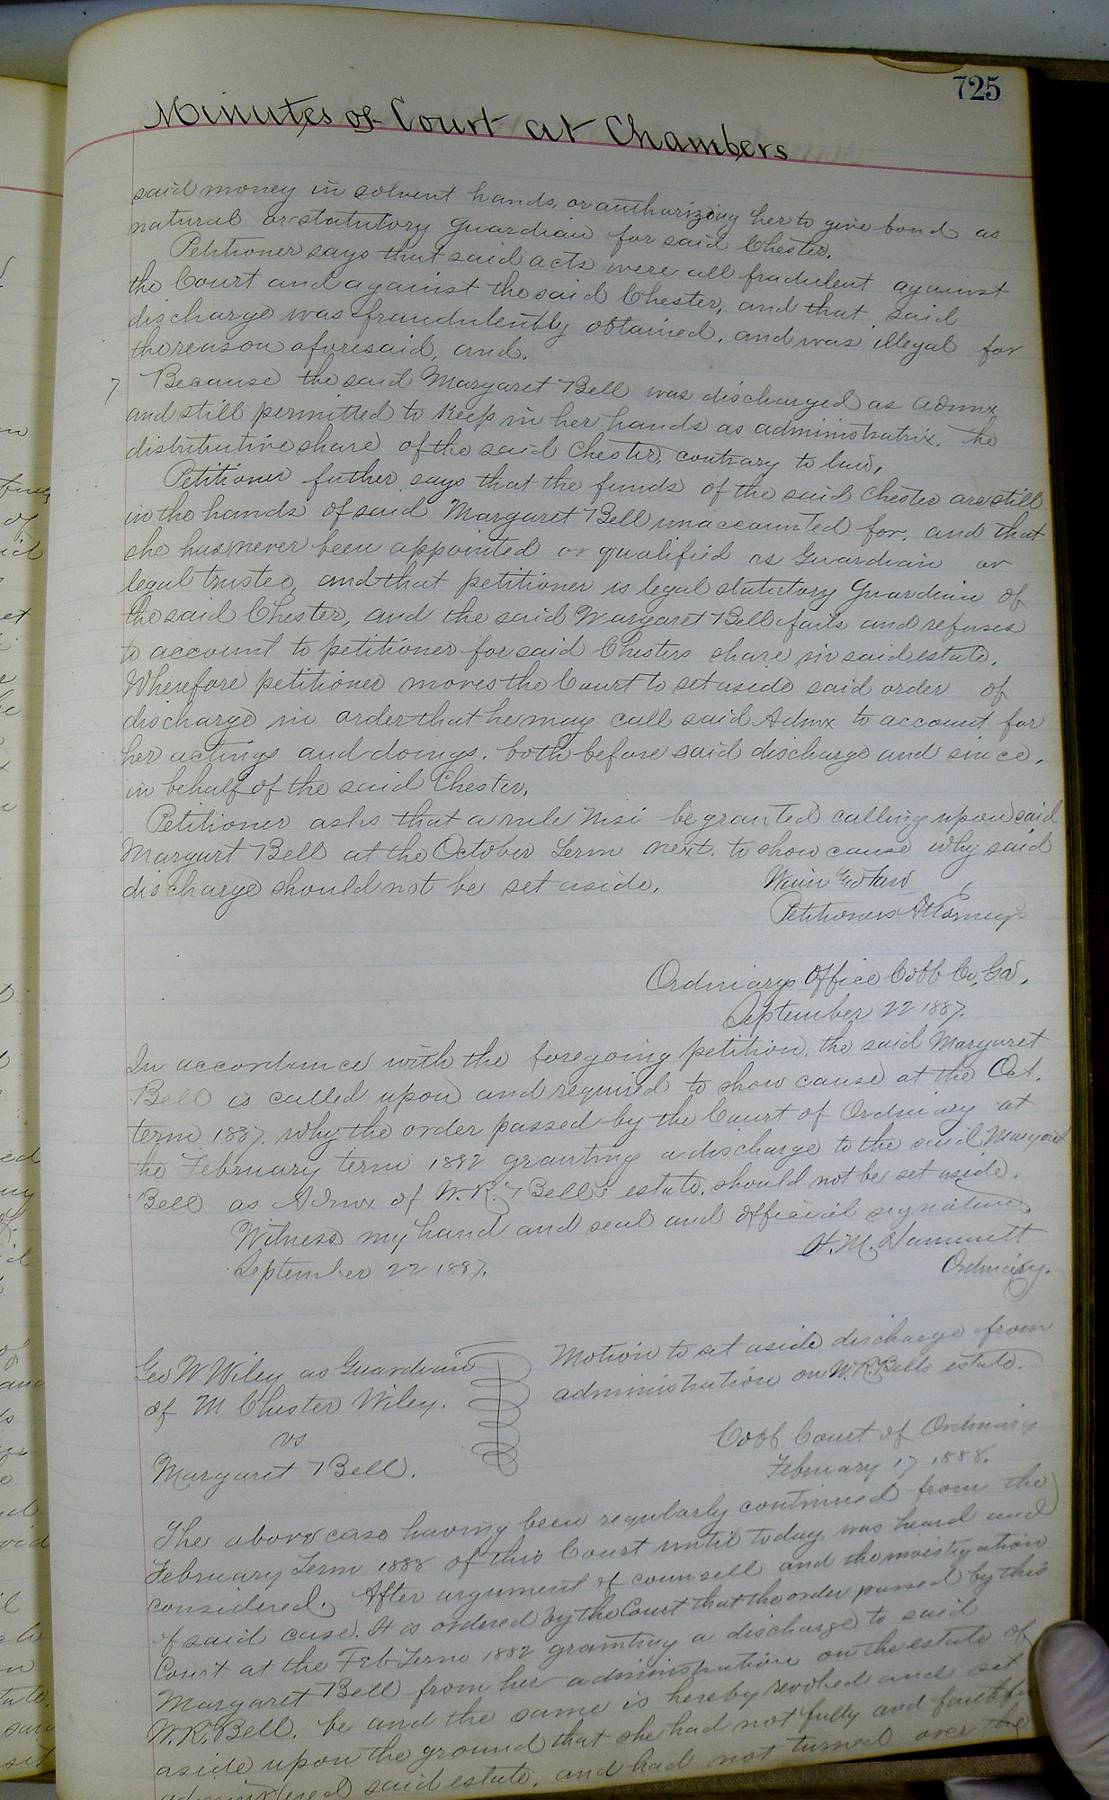 725
Minutes of Court at Chambers
said money in solvent hands, or authorizing her to give bond as
natural or statutory guardian for said Chester.
Petitioner says that said acts were all fradulent against
the Court and against the said Chester, and that said
discharge was fraudulently obtained, and was illegal for
the reason aforesaid, and.
7 Because the said Margaret Bell was discharged as admx
and still permitted to keep in her hands as administratrix. the
distributive share of the said Chester, contrary to law,
Petitioner futher says that the funds of the said Chester are still
in the hands of said Margaret Bell unaccounted for, and that
she has never been appointed or qualified as Guardian or
legal trustee, and that petitioner is legal statutory Guardian of
the said Chester, and the said Margaret Bell fails and refuses
to account to petitioner for said Chesters share in said estate.
Wherefore petitioner moves the Court to set aside said order of
discharge in order that he may call said Admx to account for
her actings and doings, both before said discharge and since,
in behalf of the said Chester,
Petitioner asks that a rule Nisi be granted calling upon said
Margart Bell at the October Term next. to show cause why said
discharge should not be set aside.
Petitioners Attorneys
Ordinarys Office Cobb Co, Ga,
September 22 1887.
In accordance with the foregoing petition, the said Margaret
Bell is called upon and required to show cause at the Oct.
term 1887, why the order passed by the Court of Ordinary at
the February term 1882 granting a discharge to the said Margaret
Bell as Admx of W. R. Bell's estate, should not be set aside.
Witness my hand and seal and official signature
September 22 1887.
H. M. Hammett
Ordinary.
Geo W Wiley as Guardian
of M Chester Wiley.
vs
Margaret Bell.
Motion to set aside discharge from
administration on W.R. Bells estate.
Cobb Court of Ordinary
February 17 1888.
The above case having been regularly continued from the
February Term 1888 of this Court until today was heard and
considered. After argument of counsell and the investigation
of said case. It is ordered by the Court that the order passed by this
Court at the Feb Term 1882 granting a discharge to said
Margaret Bell from her administration on the estate of
W. R. Bell, be and the same is hereby revoked and set
aside upon the ground that she had not fully and faithfu
administered said estate, and had not turned over the